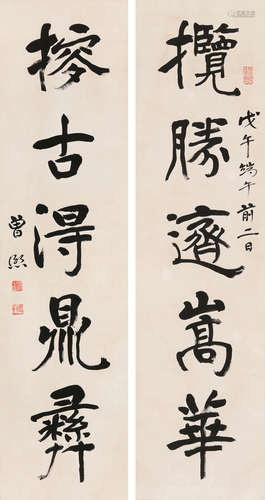 攬勝嵩華
戊午端午前二日
古得鼎彝
曾熙